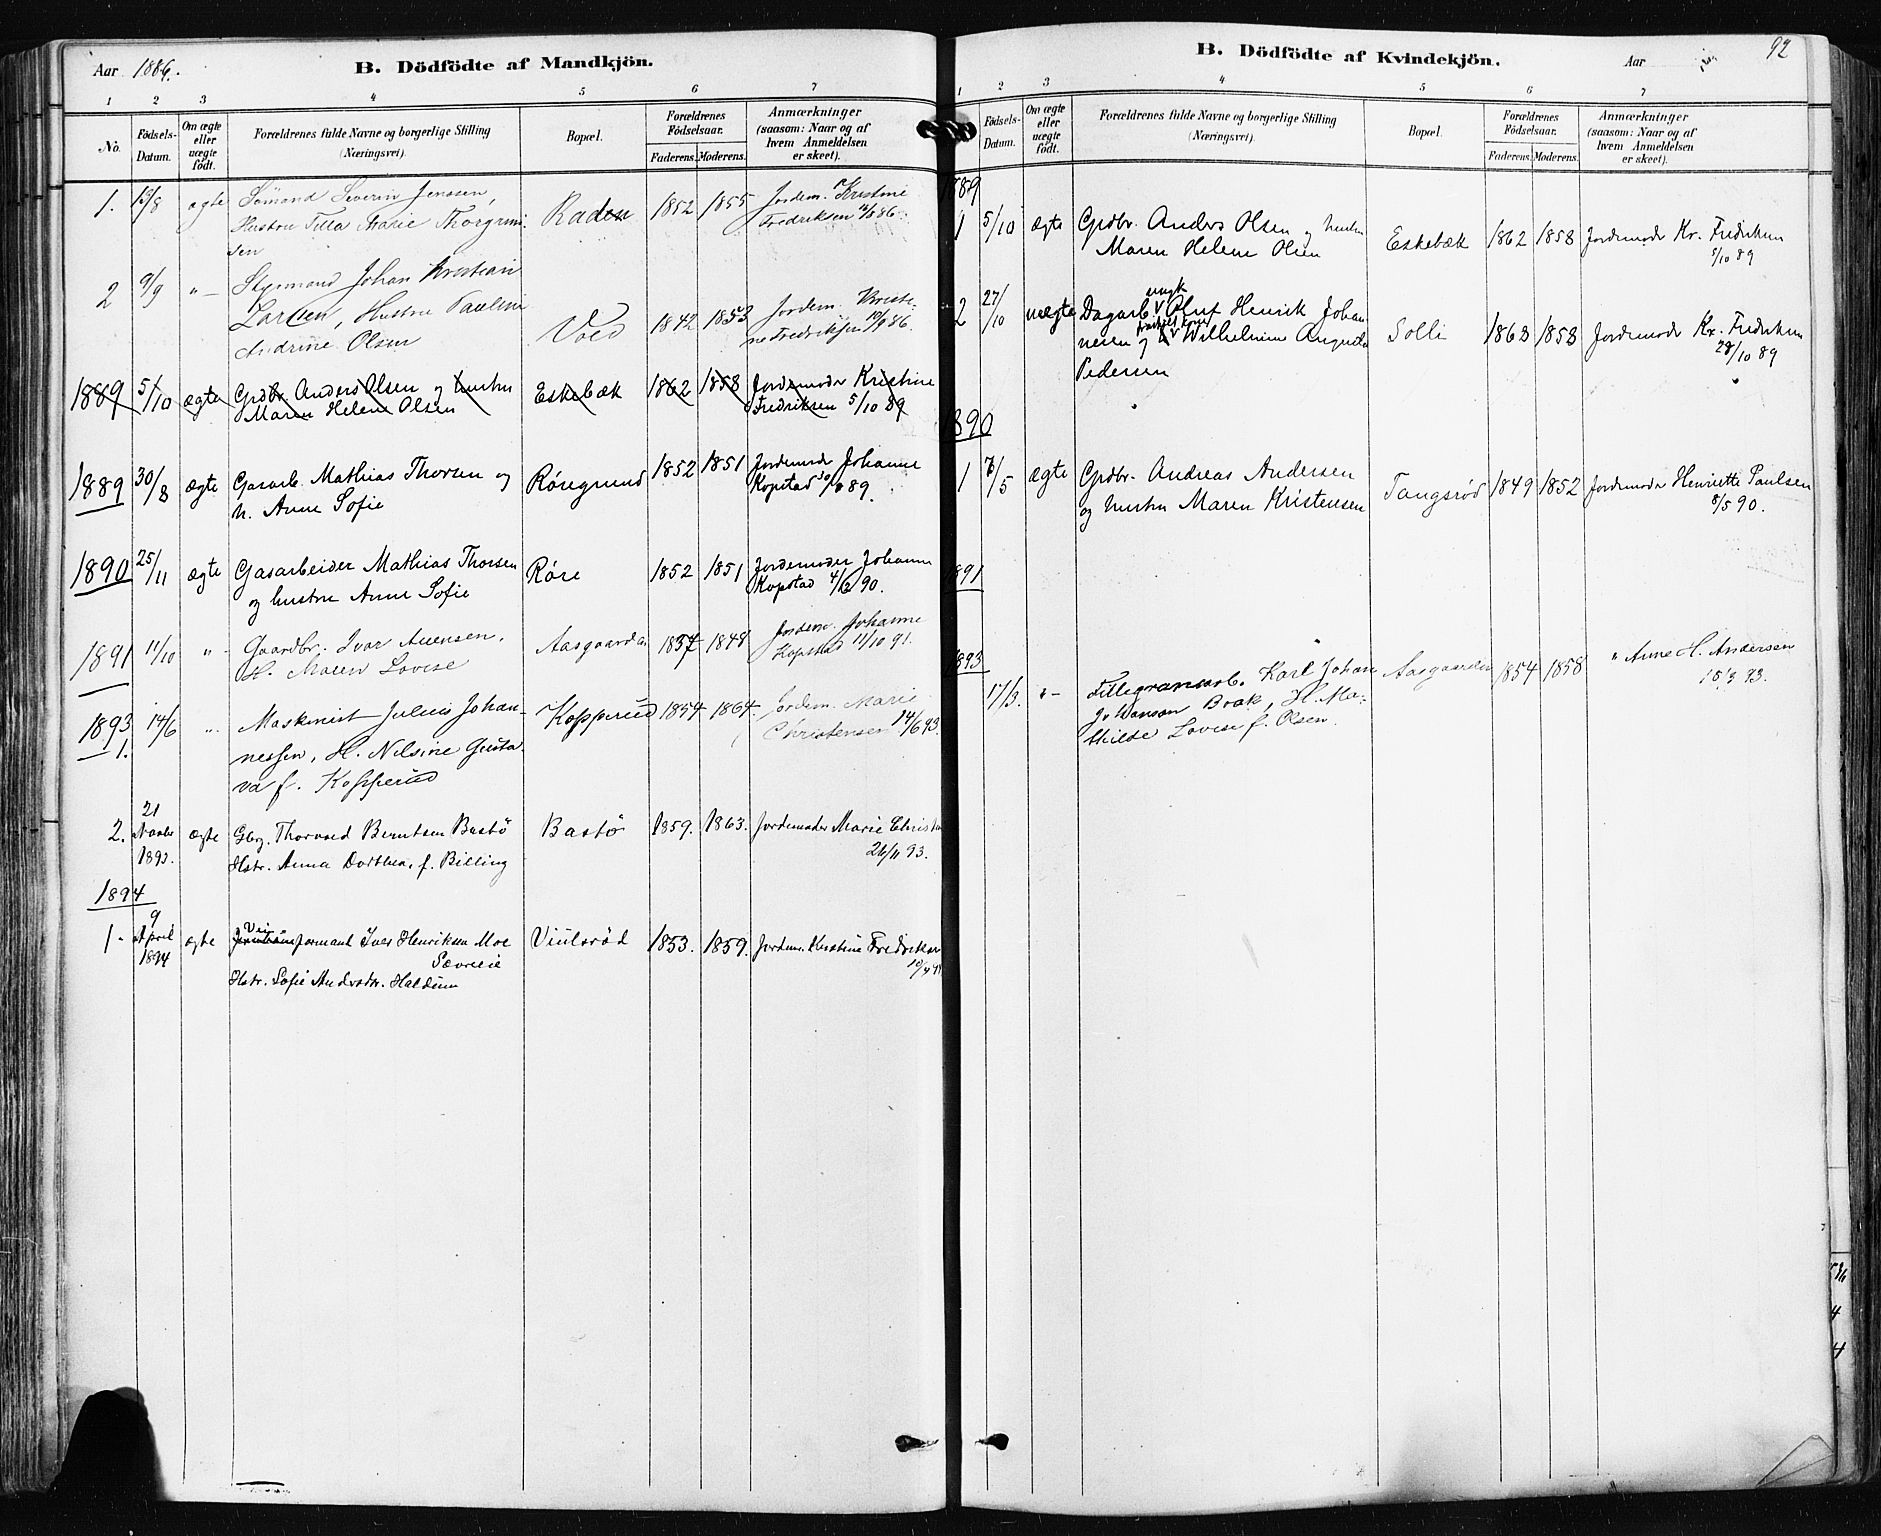 Aar 1886. B. Dödfödte af Mandkjön.
1 2 3 4 5 6 7
No. Födsels-Datum. Om ægte eller uægte födt. Forældrenes fulde Navne og borgerlige Stilling (Næringsvei). Bopæl. Forældrenes Födselsaar. Faderens. Moderens. Anmærkninger (saasom: Naar og af hvem Anmeldelsen er skeet).
1. /8 ægte Sömand Severin Jenssen, Raden 1852 1855 Jordem. Kristine
Hustru Tilla Marie Thorgrim- Fredriksen /8 86.
sen
2 9/9 „— Styrmand Johan Kristian
Larsen, Hustru Pauline Vold 1842 1853 Jordem. Kristi-
Andrine Olsen ne Fredriksen 10/9 86.
1889 5/10 ægte Grdbr. Anders Olsen og hustru Eskebæk 1862 1858 Jordemoder Kristine
Maren Helene Olsen Fredriksen 5/10 89
1889 30/8 ægte Gasarb. Mathias Thorsen og Röregrund 1852 1851 Jordemoder Johanne
h. Anne Sofie Kopstad 30/8 89.
1890 25/11 ægte Gasarbeider Mathias Thorsen Röre 1852 1851 Jordemoder Johanne
og hustru Anne Sofie Kopstad 4/12 90.
1891 11/10 „ Gaardbr. Ivar Auensen, Aasgaarden 1857 1848 Jordem. Johanne
H. Maren Lovise Kopstad 11/10 91.
1893 14/6 „ Maskinist Julius Johan- Kopperud 1854 1864 Jordem. Marie
1. nessen, H. Nilsine Gusta- Christensen 14/6 93.
va f. Kopperud
2. 21 Novbr 1893. ægte Gbg. Thorvald Berntsen Bastö Bastö 1859. 1863. Jordemoder Marie Christen
Hstr. Anna Dorthea, f. Billing 26/11 93.
1894
1. 9 April 1894 ægte Vei formand Iver Henriksen Moe Viulsröd 1853. 1859. Jordem. Kristine Fredriksen
Sævreie 10/4 94
Hstr. Sofie Andrsdtr. Haldum
B. Dödfödte af Kvindekjön. Aar 92
1 2 3 4 5 6 7
Födsels-Datum. Om ægte eller uægte födt. Forældrenes fulde Navne og borgerlige Stilling (Næringsvei). Bopæl. Forældrenes Födselsaar. Faderens. Moderens. Anmærkninger (saasom: Naar og af hvem Anmeldelsen er skeet).
1889
1 5/10 ægte Grdbr. Anders Olsen og hustru Eskebæk 1862 1858 Jordemoder Kr. Fredriksen
Maren Helene Olsen 5/10 89
2 27/10 uægte Dagarb. ungk Oluf Henrik Johan- Solli 1863 1858 Jordemoder Kr. Fredriksen
nesen og Wilhelmine Augusta 28/10 89
Pedersen
1890
1 /5 ægte Grdbr. Andreas Andersen Tangsröd 1849 1852 Jordemoder Henriette Paulsen
og hustru Maren Kristensen 8/5 90.
1891
„
1893
17/3. „— Filligransarb. Karl Johan Aasgaarden 1854 1858 „ Anne H. Andersen
Johansen Brak, H. Ma- 18/3 93.
thilde Lovise f. Olsen.